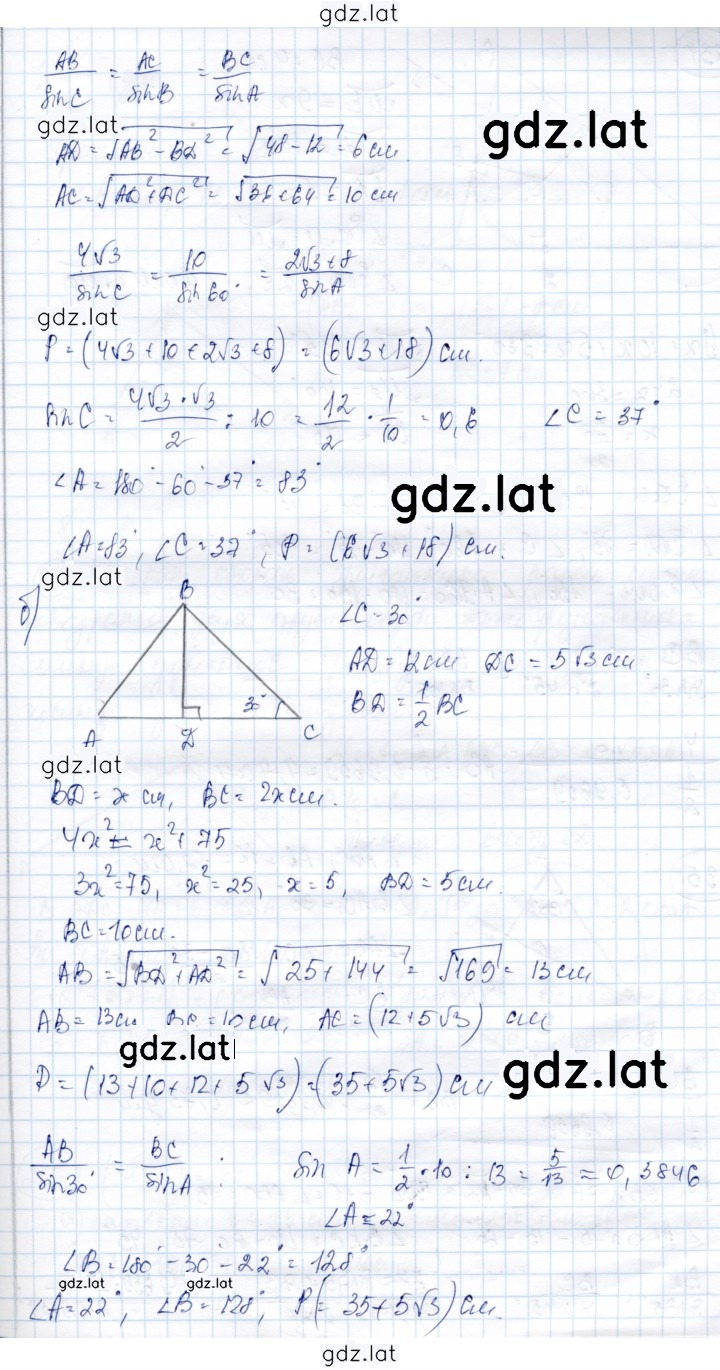 gdz.lat
AB/sin C = AC/sin B = BC/sin A
gdz.lat
gdz.lat
AD = √(AB² − BD²) = √(48 − 12) = 6 cm
AC = √(AD² + DC²) = √(36 + 64) = 10 cm
4√3/sin C = 10/sin 60° = (2√3 + 8)/sin A
gdz.lat
P = (4√3 + 10 + 2√3 + 8) = (6√3 + 18) cm.
sin C = (4√3 · √3)/2 : 10 = 12/2 · 1/10 = 0,6 ∠C = 37°
∠A = 180° − 60° − 37° = 83°
gdz.lat
∠A = 83°, ∠C = 37°, P = (6√3 + 18) cm.
gdz.lat
б)
B
A
D
C
30°
∠C = 30°
AD = 12 cm DC = 5√3 cm.
BD = 1/2 BC
gdz.lat
BD = x cm, BC = 2x cm.
4x² = x² + 75
3x² = 75, x² = 25, x = 5, BD = 5 cm.
BC = 10 cm.
AB = √(BD² + AD²) = √(25 + 144) = √169 = 13 cm
AB = 13 cm BC = 10 cm, AC = (12 + 5√3) cm
gdz.lat
gdz.lat
P = (13 + 10 + 12 + 5√3) = (35 + 5√3) cm
AB/sin 30° = BC/sin A : sin A = 1/2 · 10 : 13 = 5/13 ≈ 0,3846
∠A ≈ 22°
∠B = 180° − 30° − 22° = 128°
gdz.lat
gdz.lat
∠A = 22°, ∠B = 128°, P( = 35 + 5√3) cm.
gdz.lat